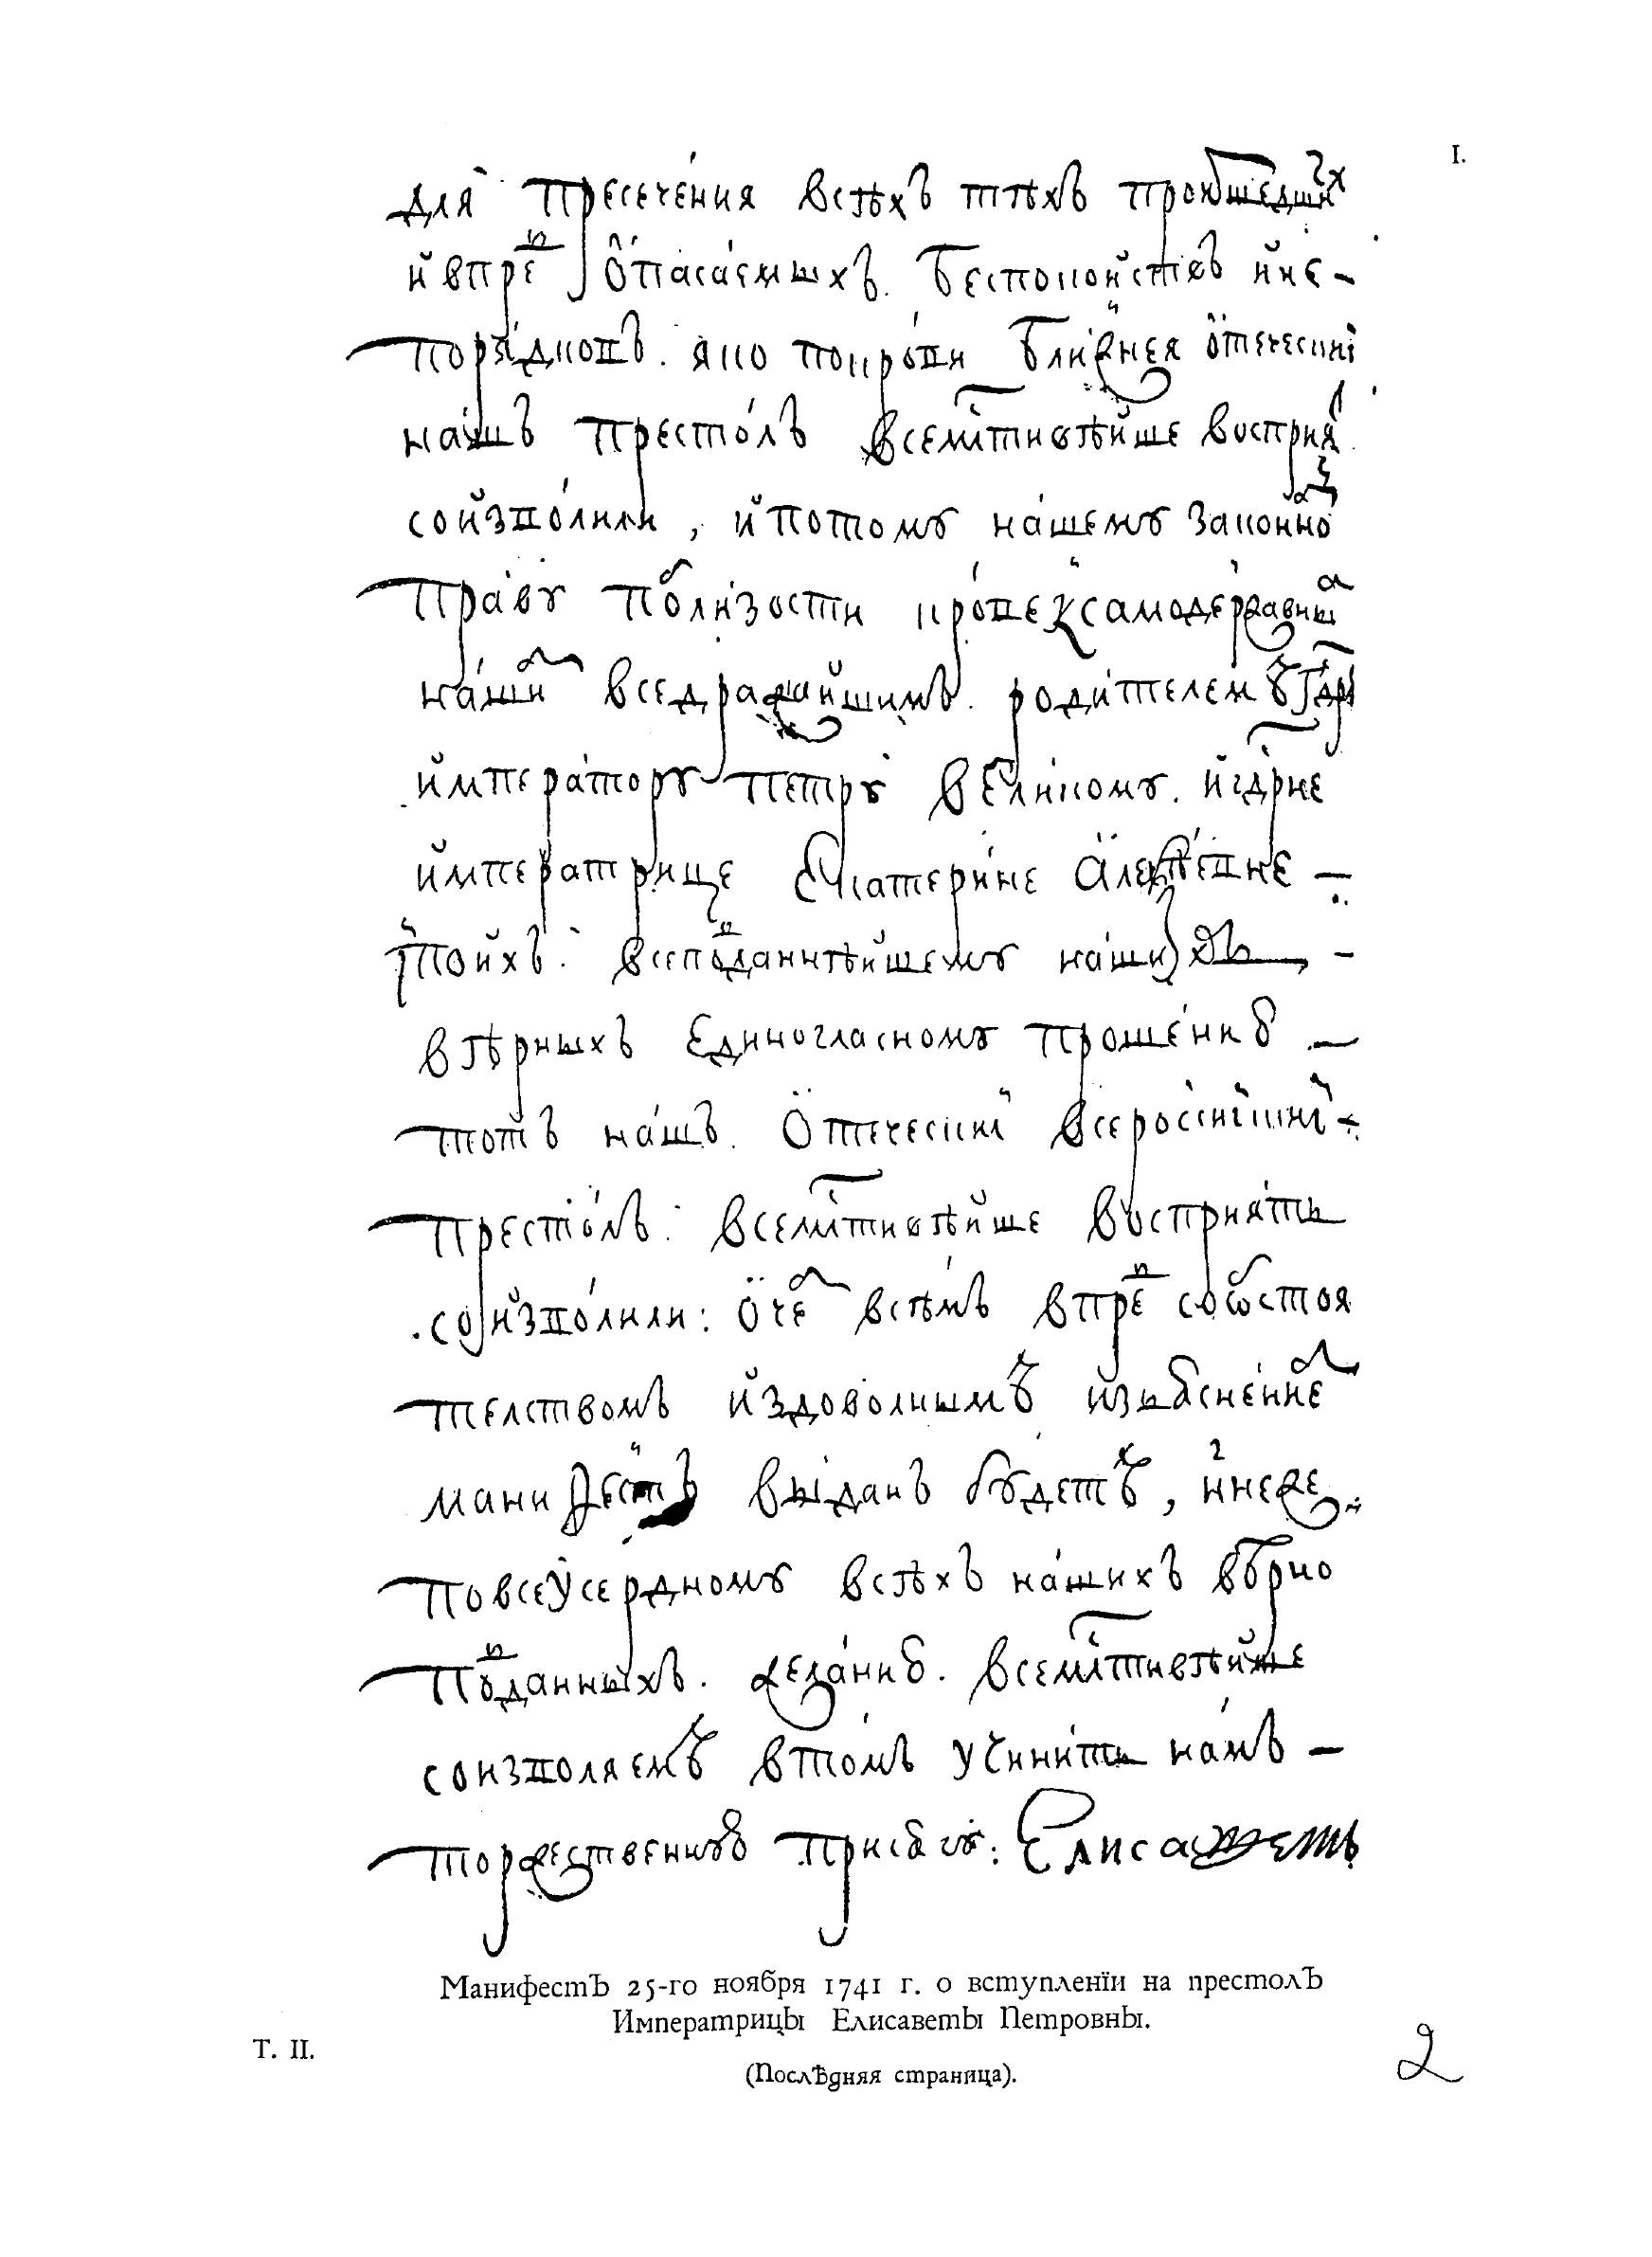 I.
для пресечения всѣхъ тѣхъ произшедших
и впредь опасаемыхъ. беспокойствъ и не-
порядковъ. яко по крови ближнея отечески
нашъ престолъ всемлтивѣйше восприя
соизволили, и потому нашему законно
праву по близости крови къ самодержавным
нашим вседражайшимъ. родителемъ гдрю
императору петру великому. и гдрне
императрице Екатерине алеѯевне —
и по ихъ всеподданнѣйшему наших —
вѣрныхъ единогласному прошению —
тотъ нашъ. отечески всеросийски
престолъ: всемлтивѣйше восприять
соизволили: о чем всѣмъ впредь со обстоя
телствомъ и з доволнымъ изъяснением
манифестъ выданъ будетъ, и ннѣ же
по всеусердному всѣхъ нашихъ вѣрно
подданныхъ. желанию. всемлтивѣйше
соизволяемъ в томъ учинить намъ —
торжественную присягу: Елисаветъ
МанифестЪ 25-го ноября 1741 г. о вступленїи на престолЪ
ИмператрицЫ ЕлисаветЫ ПетровнЫ.
Т. II.
(ПослѢдняя страница).
2